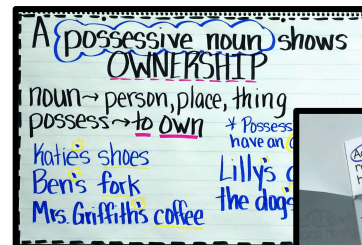 A possessive noun shows
OWNERSHIP
noun→ person, place, thing
possess→ to own
* Possess
have an
Katie's shoes
Ben's fork
Mrs. Griffith's coffee
Lilly's
the dog's